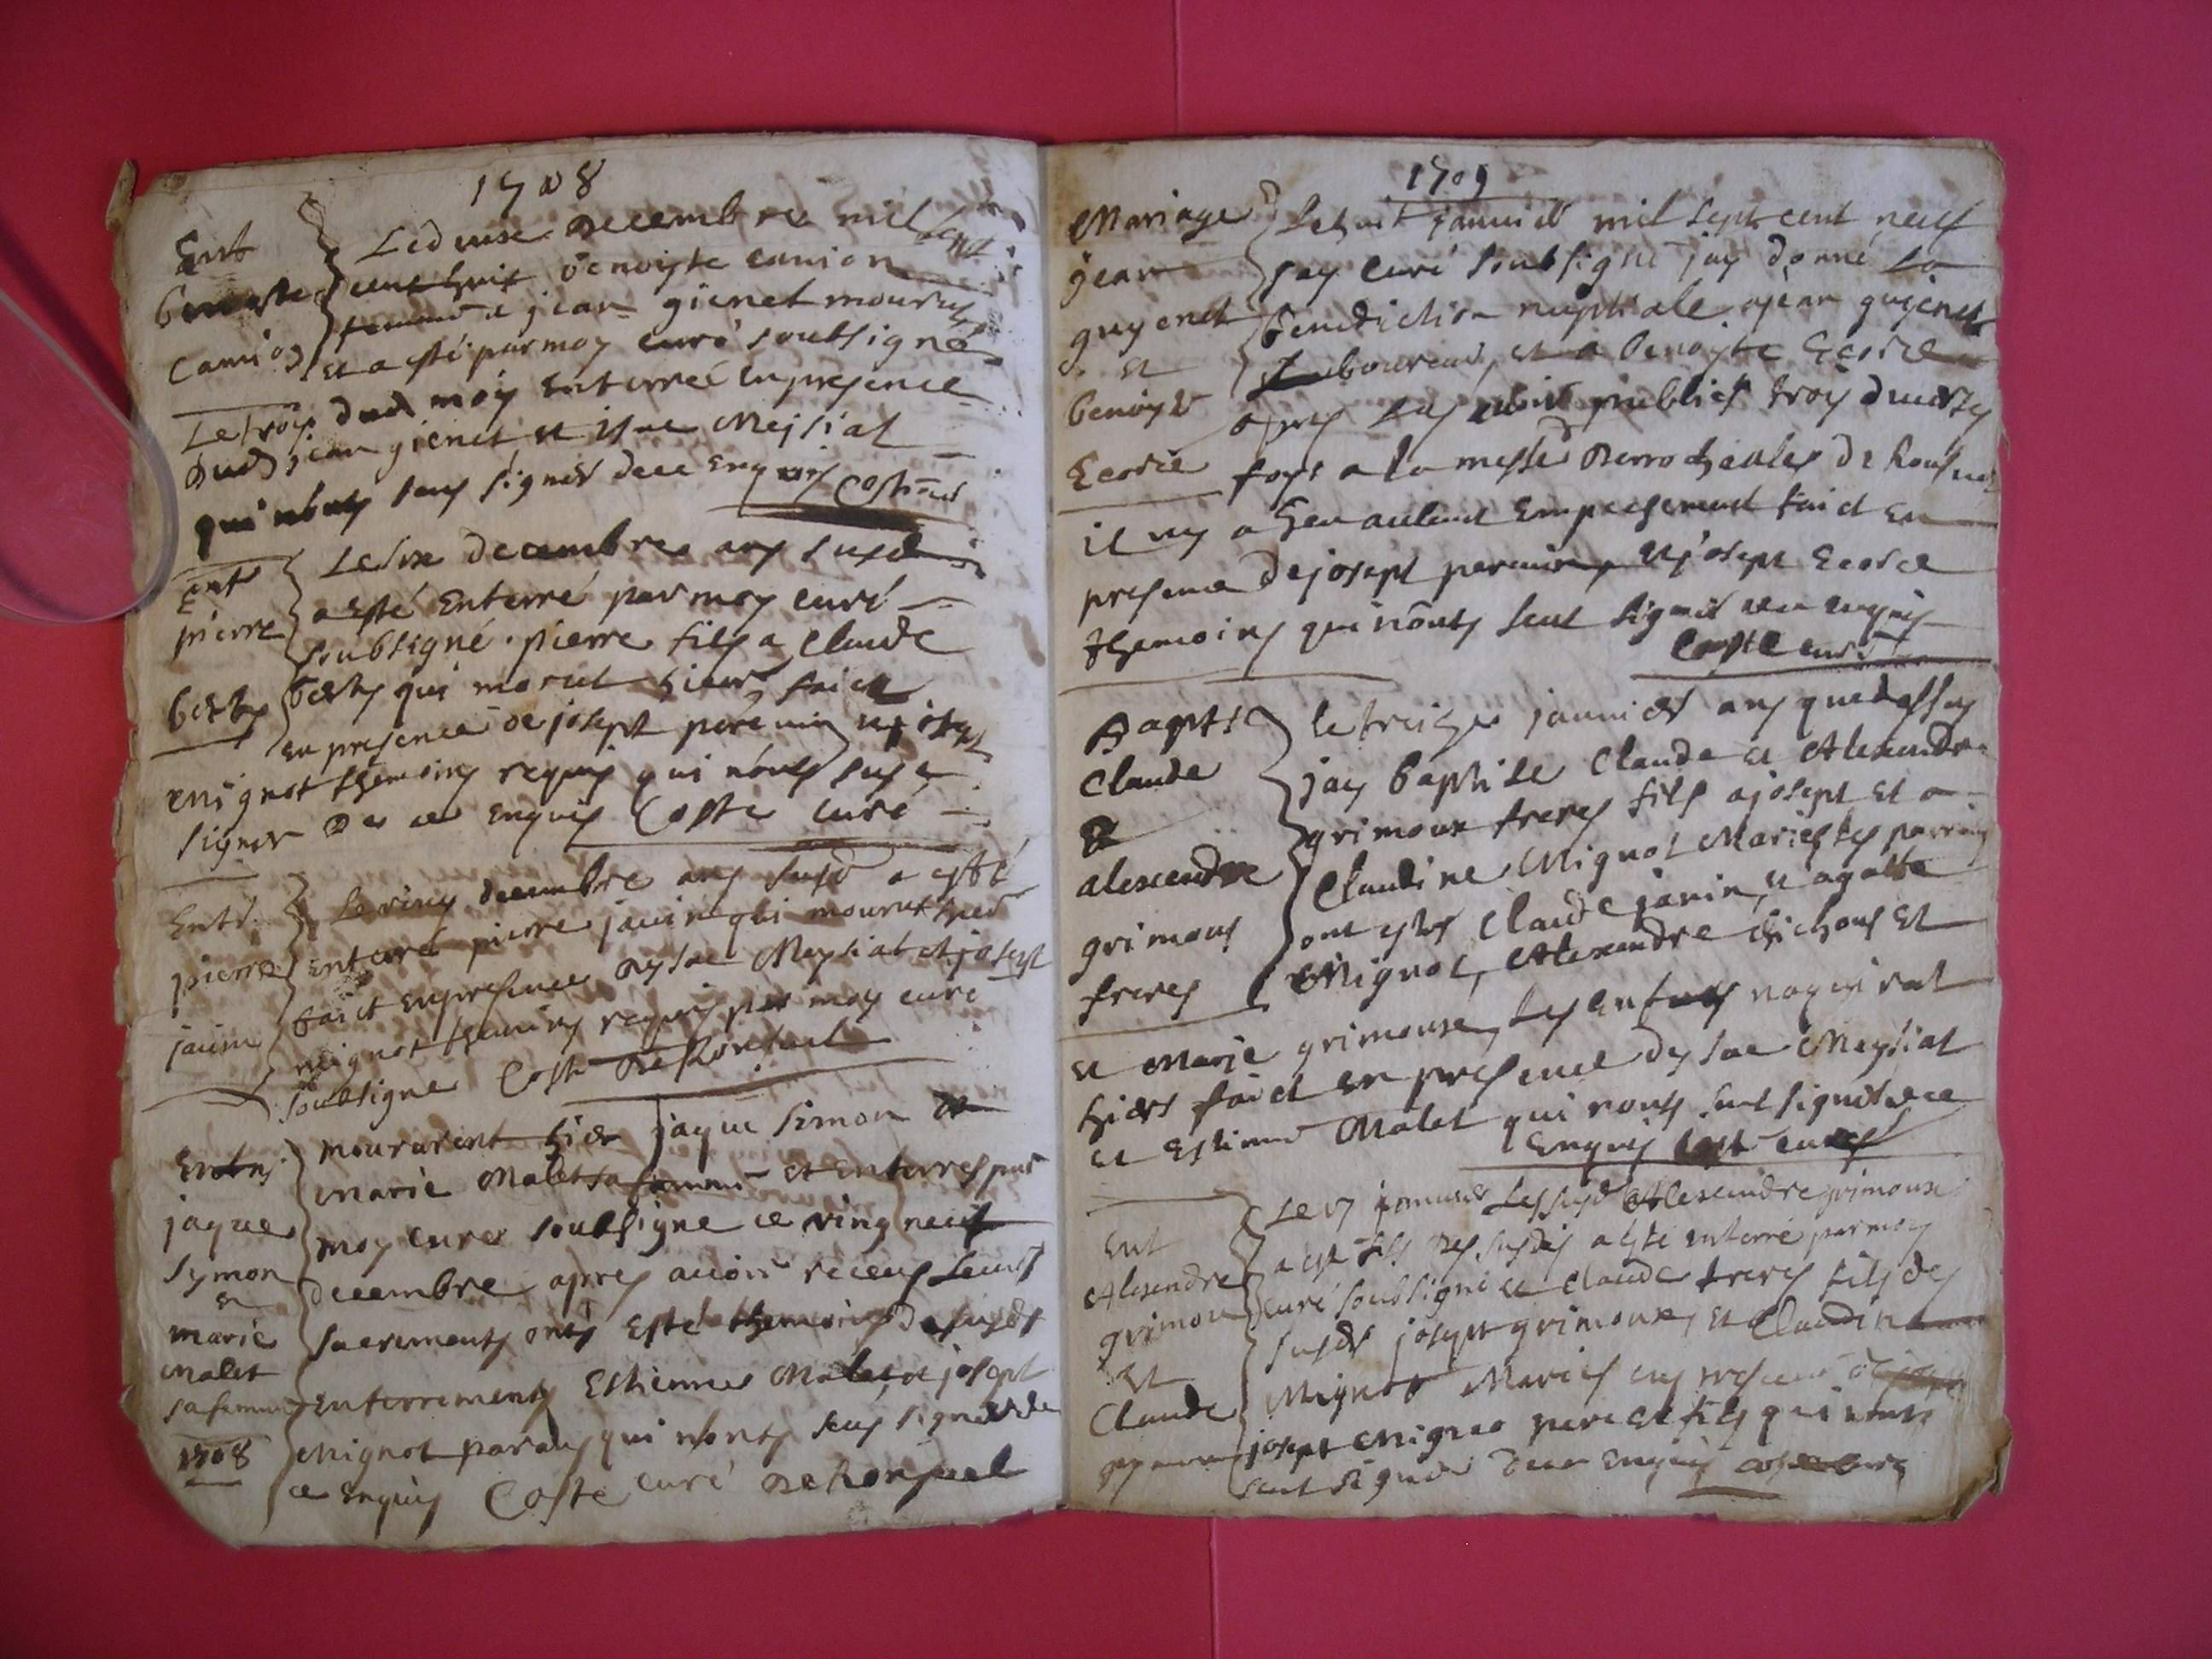 1708
Ent
benoiste
Camion
Le deuxe decembre mil sept
cent huit benoiste camion
femme a jean gienet mourut
et a esté par moy curé soubsigné
Le trois dud moy enterreé en presence
dud jean gienet et isac Meysiat
qui nonts seus signer de ce enquis Coste curé
Ent
pierre
berthe
Le six decembre ans susd
a esté enterré par moy curé
soubsigné pierre fils a Claude
qui morut hier faict
en presence de josept perenin et josept
mignot themoins requis qui nonts sus
signer de ce enquis Coste curé
Entr
pierre
jauin
Le ving decembre ans susd a esté
enterré pierre jauin qui mourut hier
faict en presence dysac Meysiat et josept
mignot themoins requis par moy curé
soubsigne Coste
Entrs
jaque
Symon
et
marie
malet
sa femme
1708
moururent hier jaque Simon et
marie Malet sa femme et enterres par
moy curé soubsigne ce ving neuf
decembre apres auoir receus leurs
sacrements onts esté themoins desusds
enterrements Estienne Malet, et josept
Mignot qui nonts seus signer de
ce enquis Coste curé
1709
Mariage
jean
guyenet
et
benoyte
Ecorce
Le huit januier mil sept cent neuf
jay curé soubsigné jay donné la
benediction nuptiale a jean guyenet
Laboureur, et a benoyte Ecorce
apres publies troy duerses
foys a la messe
il ny a heu aulcun empechement faict en
presence de josept perenin, et josept Ecorce
themoins qui nonts seut signer de ce enquis
Coste curé
Bapts
Claude
&
alexandre
grimous
freres
le treize januier ans que dessus
jay baptise Claude et Alexandre
grimoux freres fils a josept et a
Claudine Mignot Maries les parrains
ont estes Claude janin, et agathe
Mignot, Alexandre et
et Marie grimouse, les enfants
hiers faict en presence dysac Meysiat
et Estienne Malet qui nonts sut signer de ce
enquis Coste curé
Ent
Alexandre
grimou
et
Claude
Le 17 januier Alexandre grimoux
fils des susdis a esté enterré par moy
curé soubsigné et Claude freres fils des
susds josept grimoux, et Claudine
Mignot Maries en presence de
josept mignot pere et fils qui nonts
seut signer de ce enquis Coste curé